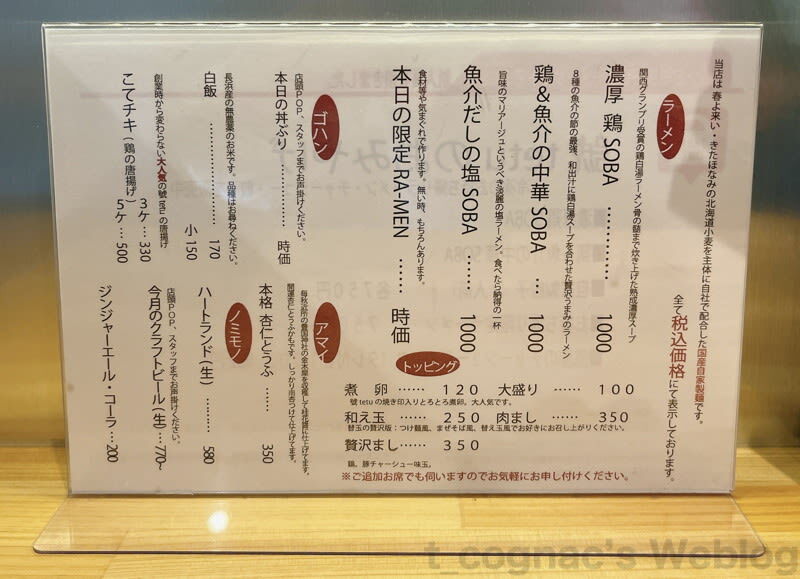 当店は 春よ来い・きたほなみの北海道小麦を主体に自社で配合した国産自家製麺です。
全て税込価格にて表示しております。
ラーメン
関西グランプリ受賞の鶏白湯ラーメン骨の髄まで炊き上げた熟成濃厚スープ
濃厚 鶏 SOBA ………… 1000
8種の魚介の節の最強、和出汁に鶏白湯スープを合わせた贅沢うまみのラーメン
鶏&魚介の中華 SOBA …… 1000
旨味のマリアージュというべき淡麗の塩ラーメン。食べたら納得の一杯
魚介だしの塩 SOBA …… 1000
食材等や気まぐれで作ります。無い時、もちろんあります。
本日の限定 RA-MEN …… 時価
ゴハン
店頭POP、スタッフまでお声掛けください。
本日の丼ぶり………… 時価
長浜産の無農薬のお米です。品種はお尋ねください。
白飯 ………… 170
小 150
創業時から変わらない大人気の號tetuの唐揚げ
こてチキ(鶏の唐揚げ)
3ケ… 330
5ケ… 500
トッピング
煮 卵 …… 120 大盛り …… 100
號tetuの焼き印入りとろとろ煮卵。大人気です。
和え玉 …… 250 肉まし …… 350
替玉の贅沢版:つけ麺風、まぜそば風、替え玉風でお好きにお召し上がりください。
贅沢まし …… 350
鶏、豚チャーシュー味玉。
※ご追加お席でも伺いますのでお気軽にお申し付けください。
アマイ
毎秋近所の豊国神社の金木犀を収穫して桂花醤に仕上げてます。
開運杏仁どうふかもです。しっかり南杏つけて仕上げてます。
本格 杏仁どうふ …… 350
ノミモノ
ハートランド(生) ……… 580
店頭POP、スタッフまでお声掛けください。
今月のクラフトビール(生)…770~
ジンジャーエール・コーラ…200
t_cognac's Weblog